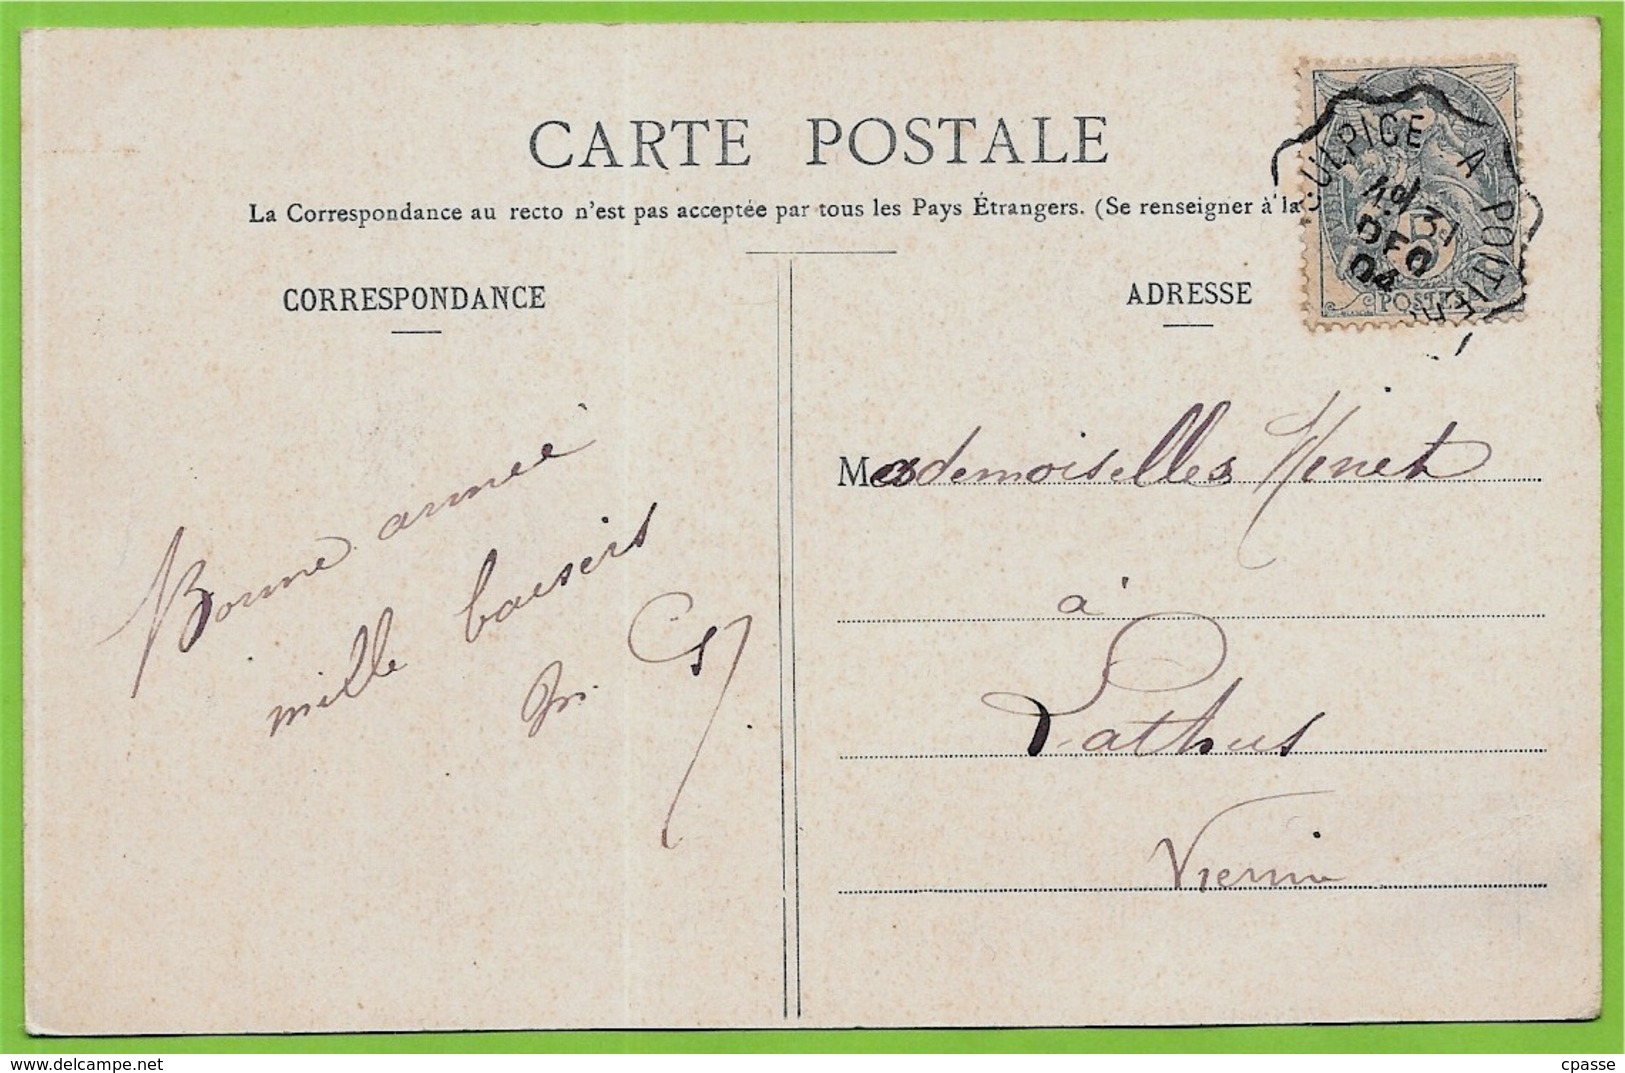 CARTE POSTALE
La Correspondance au recto n'est pas acceptée par tous les Pays Étrangers. (Se renseigner à la
CORRESPONDANCE
ADRESSE
ULPICE A POITIERS
31
DEC
04
5
POSTES
Bonne année
mille baisers
Mesdemoiselles
à
Lathus
Vienne
delcampe.net
cpasse